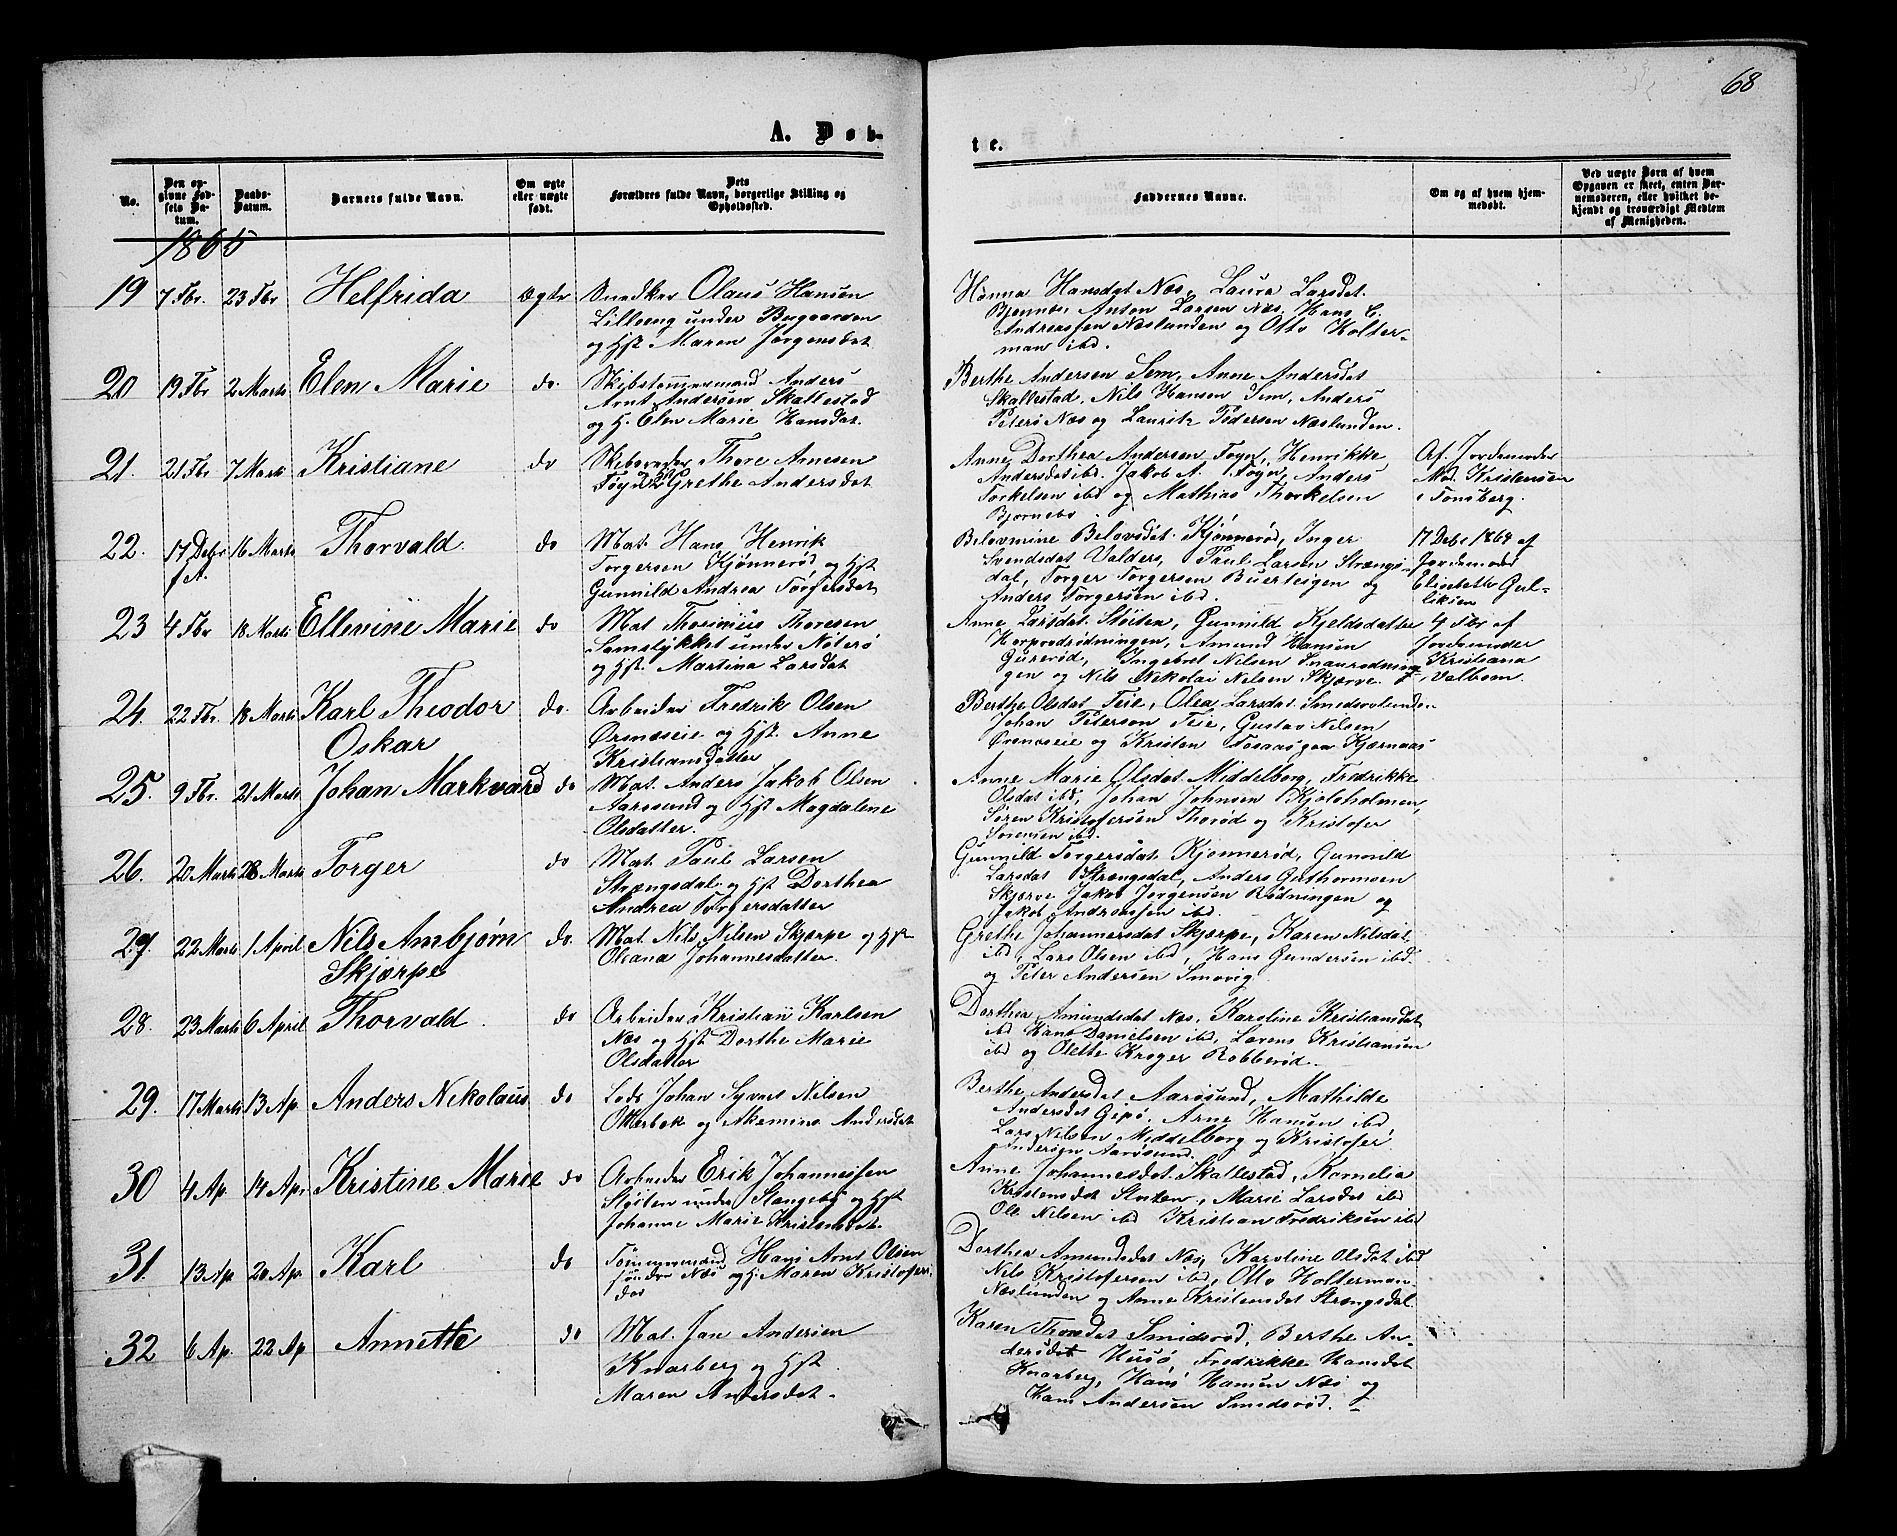 68
A. Døb-
te.
No.
Den op-
givne Fød-
sels Da-
tum.
Daabs-
Datum.
Barnets fulde Navn.
Om ægte
eller uægte
født.
Dets
Forældres fulde Navn, borgerlige Stilling og
Opholdssted.
Faddernes Navne.
Om og af hvem hjem-
medøbt.
Ved uægte Børn af hvem
Opgaven er skeet, enten Bar-
nemoderen, eller hvilket be-
kjendt og troværdigt Medlem
af Menigheden.
1865
19 7 Fbr. 23 Fbr Helfrida Ægte Snedker Olaus Hansen
Lilleeng under Bugaarden
og Hst Maren Jørgensdat
Hanna Hansdat Næs, Laura Larsdat.
Bjønnes Anton Larsen Næs, Hans C.
Andreassen Næslunden og Otto Holter-
man ibd.
20 19 Fbr 2 Marts Elen Marie do. Skibstømmermand Anders
Arnt Andersen Skallestad
og H. Elen Marie Hansdat.
Berthe Andersen Sem, Anne Andersdat
Skallestad, Nils Hansen Sem, Anders
Peters Næs og Lauritz Pedersen Næslunden.
21. 21 Fbr 7 Marts Kristiane do Skibsreder Thore Arnesen
Føyn og Hst Grethe Andersdat
Anne Dorthea Andersen Føyn, Henrikke
Andersdat ibd. Jakob A. Føyn, Anders
Torkelsen ibd og Mathias Thorkelsen
Bjørnebo.
Af Jordemoder
Mad. Kristensen
i Tønsberg.
22. 17 Debr f A. 16 Marts Thorvald. do Mat. Hans Henrik
Torgersen Kjønnerød og Hst
Gunnild Andrea Torgersdat
Belovmine Belovsdat Kjønnerød, Inger
Svendsdat Valders, Paul Larsen Strængs-
dal, Torger Torgersen Buerstigen og
Anders Torgersen ibd.
17 Debr 1864 af
Jordemoder
Elisbeth Gul-
liksen
23 4 Fbr 18 Marts Ellevine Marie do Mat Thorinius Thoresen
Samstykket under Nøterø
og Hst. Martina Larsdat
Anne Larsdat Støiten, Gunnild Kjeldsdatter
Amund Hansen
Gurerød, Ingebret Nilsen
gen og Nils Nikolai Nilsen Skjærve.
4 Fbr af
Jordemoder
Kristiana
Valbom.
24. 22 Fbr. 18 Marts Karl Theodor
Oskar do. Arbeider Fredrik Olsen
Ørsnæseie og Hst. Anne
Kristiansdatter
Berthe Olsdat Teie, Olea Larsdat Smidsrølunden
Johan Peterson Teie, Gustav Nilsen
Ørsnæseie og Kristen Kjærnaas
25. 9 Fbr. 21 Marts Johan Markvard do Mat. Anders Jakob Olsen
Aarøsund og Hst Magdalene
Olsdatter.
Anne Marie Olsdat. Middelborg, Fredrikke
Olsdat ibd, Johan Johnsen Kjøleholmen,
Søren Kristofersen Thorød og Kristofer
Sørensen ibd.
26. 20 Marts 28 Marts Torger do Mat. Paul Larsen
Strængsdal og Hst Dorthea
Andrea Torgersdatter
Gunnild Torgersdat. Kjønnerød, Gunnild
Larsdat Strængsdal, Anders Guthormsen
Skjerve Jakob Jørgensen Rødningen og
Jakob Andreassen ibd.
27. 22 Marts 1 April Nils Ambjørn
Skjærpe do. Mat. Nils Nilsen Skjærpe og Hst
Oleana Johannesdatter.
Grethe Johannesdat Skjærpe, Karen Nilsdat
ibd, Lars Olsen ibd, Hans Gundersen ibd.
og Peter Andersen Smøvig.
28. 23 Marts 6 April Thorvald. do Arbeider Kristian Karlsen
Næs og Hst Dorthe Marie
Olsdatter
Dorthea Amundsdat Næs, Karoline Kristiansdat
ibd Hans Danielsen ibd, Lorens Kristiansen
ibd og Olette Krøger Robberød.
29. 17 Marts 13 Ap. Anders Nikolaus do Lods Johan Syvert Nilsen
Oterbæk og Akamina Andersdat
Berthe Andersdat Aarøsund, Mathilde
Andersdat Gipø, Arne Hansen ibd,
Lars Nilsen Middelborg og Kristofer
Andersen Aarøsund.
30 4 Ap. 14 Apr Kristine Marie do Arbeider Erik Johannessen
Støiten under Stangeby og Hst
Johanne Marie Kristensdat.
Anne Johannesdat. Skallestad, Kornelia
Kristensdat Støiten, Marie Larsdat ibd
Ole Nilsen ibd Kristian Fredriksen ibd
31. 13 Ap 20 Ap. Karl do Tømmermand Hans Arnt Olsen
søndre Næs og H. Maren Kristofers-
dat
Dorthea Amundsdat Næs, Karoline Olsdat ibd
Nils Kristofersen ibd, Otto Holterman
Næslunden og Anne Kristensdat Strængsdal.
32 6 Ap. 22 Ap Annette do Mat. Jan Andersen
Knarberg og Hst.
Maren Andersdat.
Karen Thoresdat Smidsrød, Berthe An-
dersdat Husø, Fredrikke Hansdat
Knarberg, Hans Hansen Næs og
Hans Andersen Smidsrød.